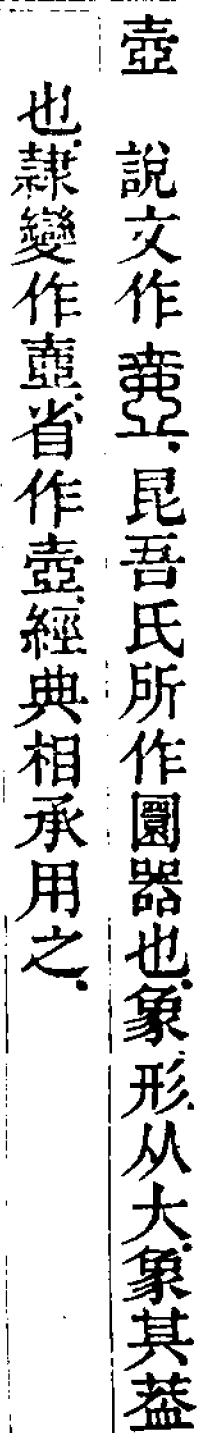 壺 說文作壺、昆吾氏所作圜器也、象形、从大、象其葢
也、隷變作壷、省作壺、經典相承用之、